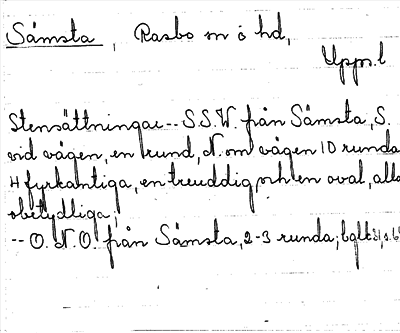 Såmsta, Rasbo sn o hd,
Upps. l
Stensättningar -- S.S.W. från Såmsta, S.
vid vägen, en rund, N. om vägen 10 runda
4 fyrkantiga, en treuddig och en oval, alla
obetydliga;
-- O.N.O. från Såmsta, 2-3 runda;